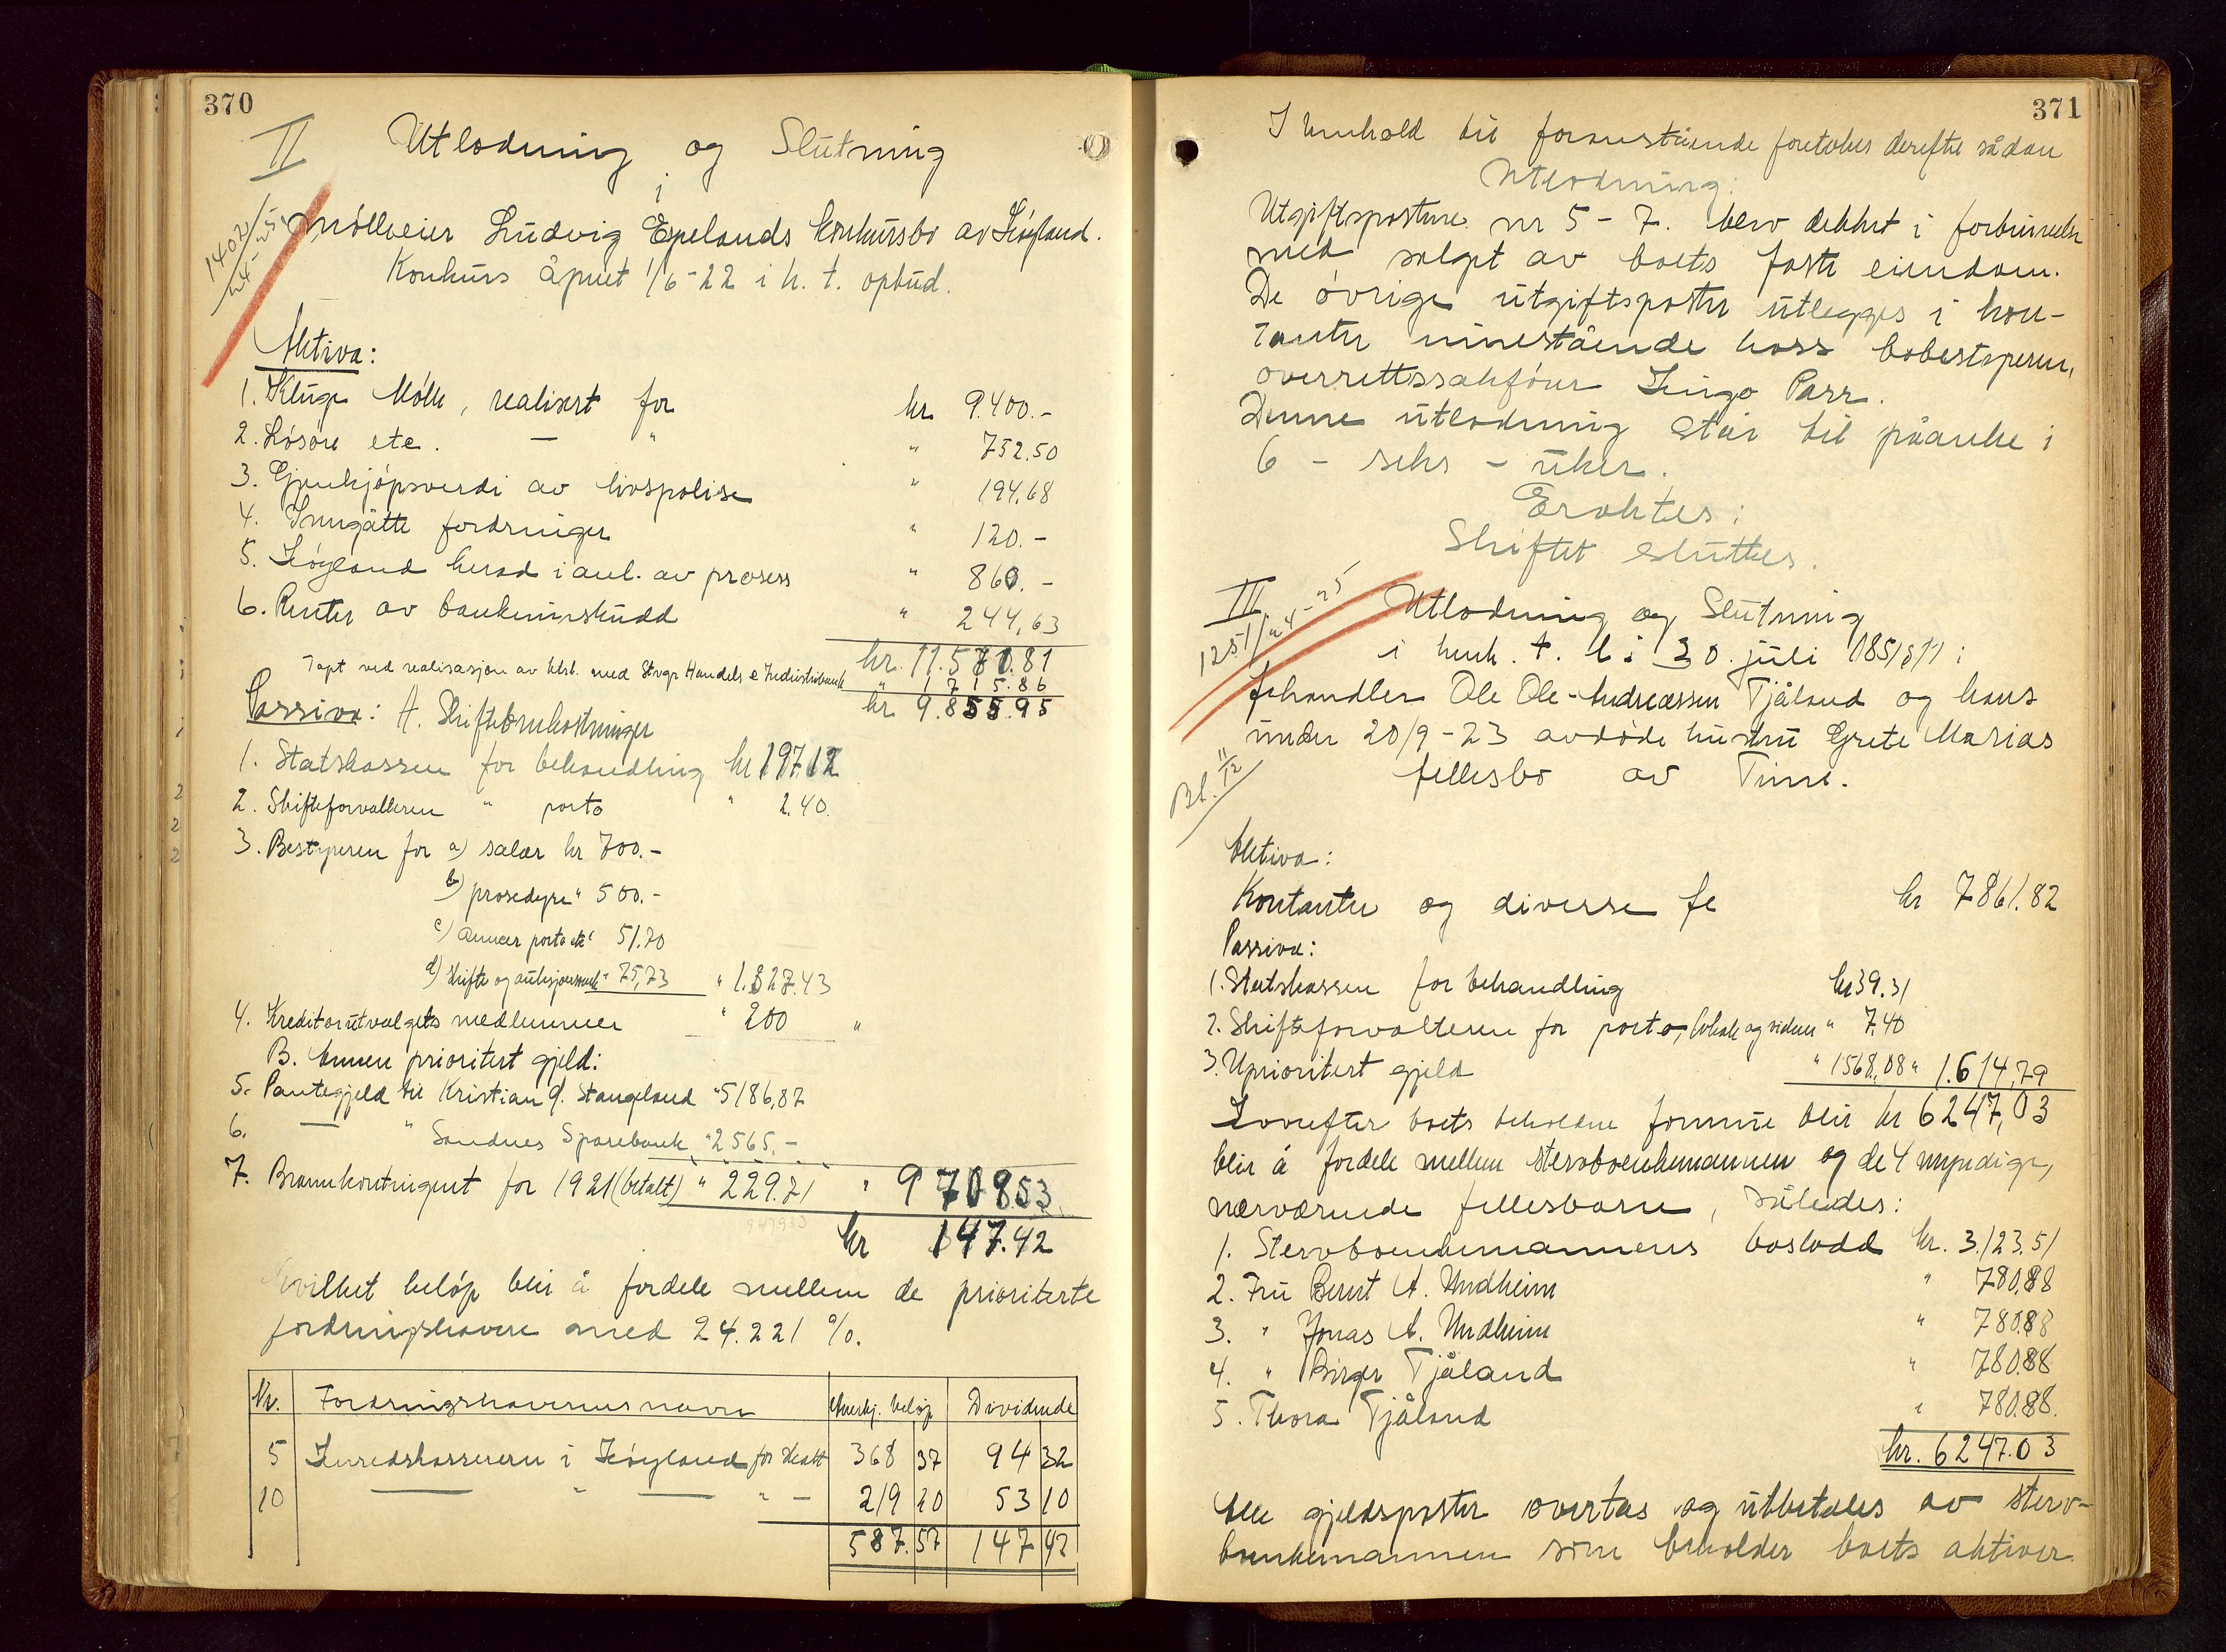 370
II Utlodning og Slutning
i
1402/24-4-25
møllveier Ludvig Epelands konkursbo av Høyland.
Konkurs åpnet 1/6-22 i h. t. opbud.
Aktiva:
1. Kluge Mølle, realisert for kr 9.400.-
2. Løsøre etc. — " " 752.50
3. Gjenkjøpsverdi av livspolise " 194.68
4. Inngåtte fordringer " 120.-
5. Høyland herad i anl. av prosess " 860.-
6. Renter av bankinnskudd " 244,63
kr. 11.571.81
Tapt ved realisasjon av utest. med Stvgr Handels & Industribank " 1715.86
kr 9.855.95
Passiva: A. Skifteomkostninger
1. Statskassen for behandling kr 197.12
2. Skifteforvalteren " porto " 2.40.
3. Bestyreren for a) salær kr 700.-
b) prosedyre " 500.-
c) annær porto etc " 51.70
d) skifte og auksjons " 75,73 " 1.327.43
4. Kreditorutvalgets medlemmer " 200 "
B. Annen prioritert gjeld:
5. Pantegjeld til Kristian J. Stangeland " 5186,87
6. — " Sandnes Sparebank " 2565.-
7. Brannkontingent for 1921 (betalt) " 229.71 " 9708.53
kr 147.42
hvilket beløp blir å fordele mellem de prioriterte
fordringshavere med 24.221 %.
Nr. Fordringshavernes navn Anerkj. beløp Dividende
5 Herredskassereren i Høyland for skatt 368 37 94 32
10 — " — " — 219 20 53 10
587. 57 147 42
371
I henhold til foranstående foretokes derefter sådan
Utlodning:
Utgiftspostene nr 5 - 7. blev dekket i forbindelse
med salget av boets faste eiendom.
De øvrige utgiftsposter utlegges i kon-
tanter innestående hoss bobestyreren,
overrettssakfører Hugo Parr.
Denne utlodning står til påanke i
6 - seks - uker.
Eraktes:
Skiftet sluttes.
III Utlodning og Slutning
1251/24-4-25
i henh. t. l. i 30. juli 1851 § 11 i
fehandler Ole Ole-Andreassen Tjåland og hans
under 20/9-23 avdøde hustru Grete Marias
fellesbo av Time.
Bl. 11/12
Aktiva:
Kontanter og diverse fe kr 7861.82
Passiva:
1. Statskassen for behandling kr 39.31
2. Skifteforvalteren for porto, lokale og vidner " 7.40
3. Uprioritert gjeld " 1568,08 " 1.614,79
Hvorefter boets beholdne formue blir kr 6247,03
blir å fordele mellem stervboenkemannen og de 4 myndige,
nærværende fellesbarn, således:
1. Stervboenkemannens boslodd kr. 3.123.51
2. Fru Berent A. Undheim " 780,88
3. " Jonas A. Undheim " 780.88
4. " Birger Tjåland " 780.88
5. Thora Tjåland " 780.88.
kr. 6247.03
Alle gjeldsposter overtas og utbetales av sterv-
boenkemannen som beholder boets aktiver